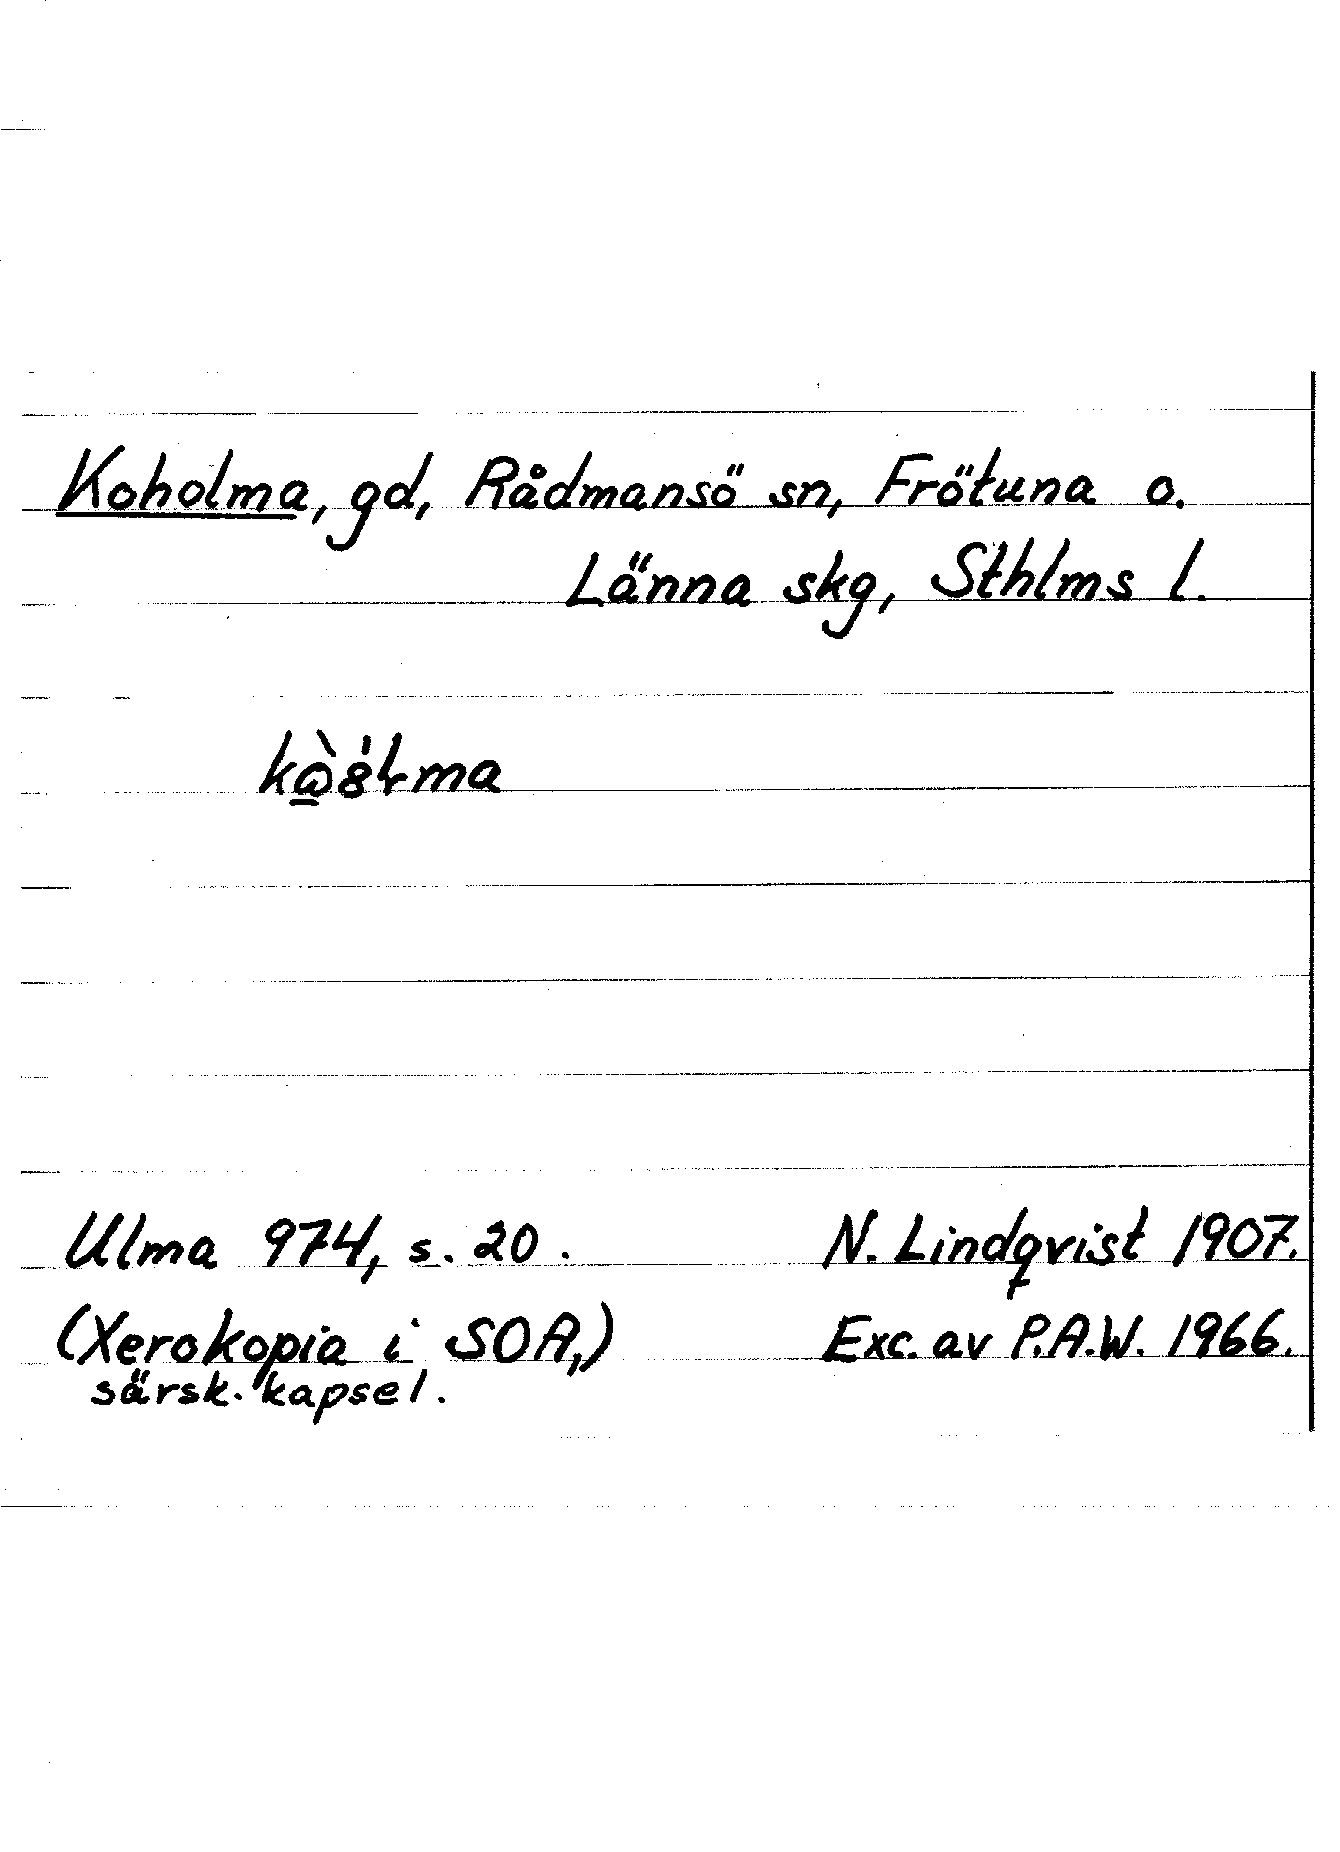 Koholma, gd, Rådmansö sn, Frötuna o.
Länna skg, Sthlms l.
Ulma 974, s. 20.
N. Lindqvist 1907.
(Xerokopia i SOA,)
Exc. av P.A.W. 1966.
särsk. kapsel.